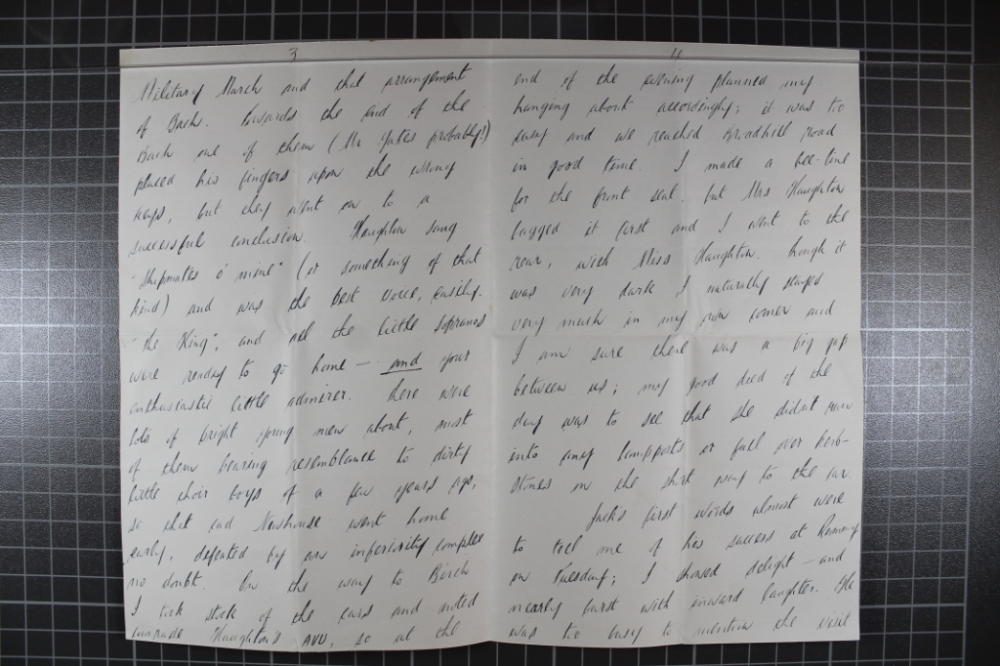 3
Military March and that arrangement
of Bach. Towards the end of the
Bach one of them (Mr Yates probably!)
placed his fingers upon the wrong
keys, but they went on to a
successful conclusion. Haughton sang
"Shipmates o' mine" (or something of that
kind) and was the best voice, easily.
"The King", and all the little sopranos
were ready to go home — and your
enthusiastic little admirer. There were
lots of bright young men about, most
of them bearing resemblance to dirty
little choir boys of a few years ago,
so that cad Newhouse went home
early, defeated by an inferiority complex
no doubt. On the way to Birch
I took stock of the cars and noted
comrade Haughton's AVU, so at the
4
end of the evening planned my
hanging about accordingly; it was too
easy and we reached Broadhill road
in good time. I made a bee-line
for the front seat, but Mrs Haughton
bagged it first and I went to the
rear, with Miss Haughton. Though it
was very dark I naturally stayed
very much in my own corner and
I am sure there was a big gap
between us; my good deed of the
day was to see that she didn't run
into any lampposts or fall over kerb-
stones on the short way to the car.
Jack's first words almost were
to tell me of his success at
on Tuesday; I showed delight — and
nearly burst with inward laughter. He
was too busy to mention the visit